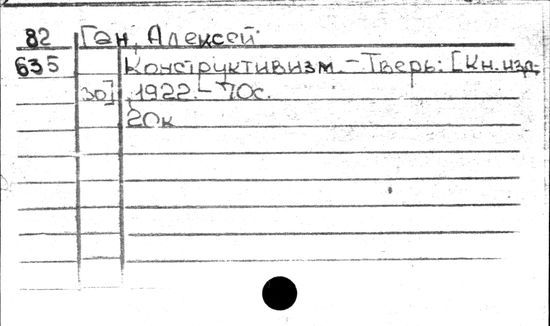 82 Ган, Алексей
635 Конструктивизм. – Тверь: [Кн. изд-
во], 1922. – 70с.
20к